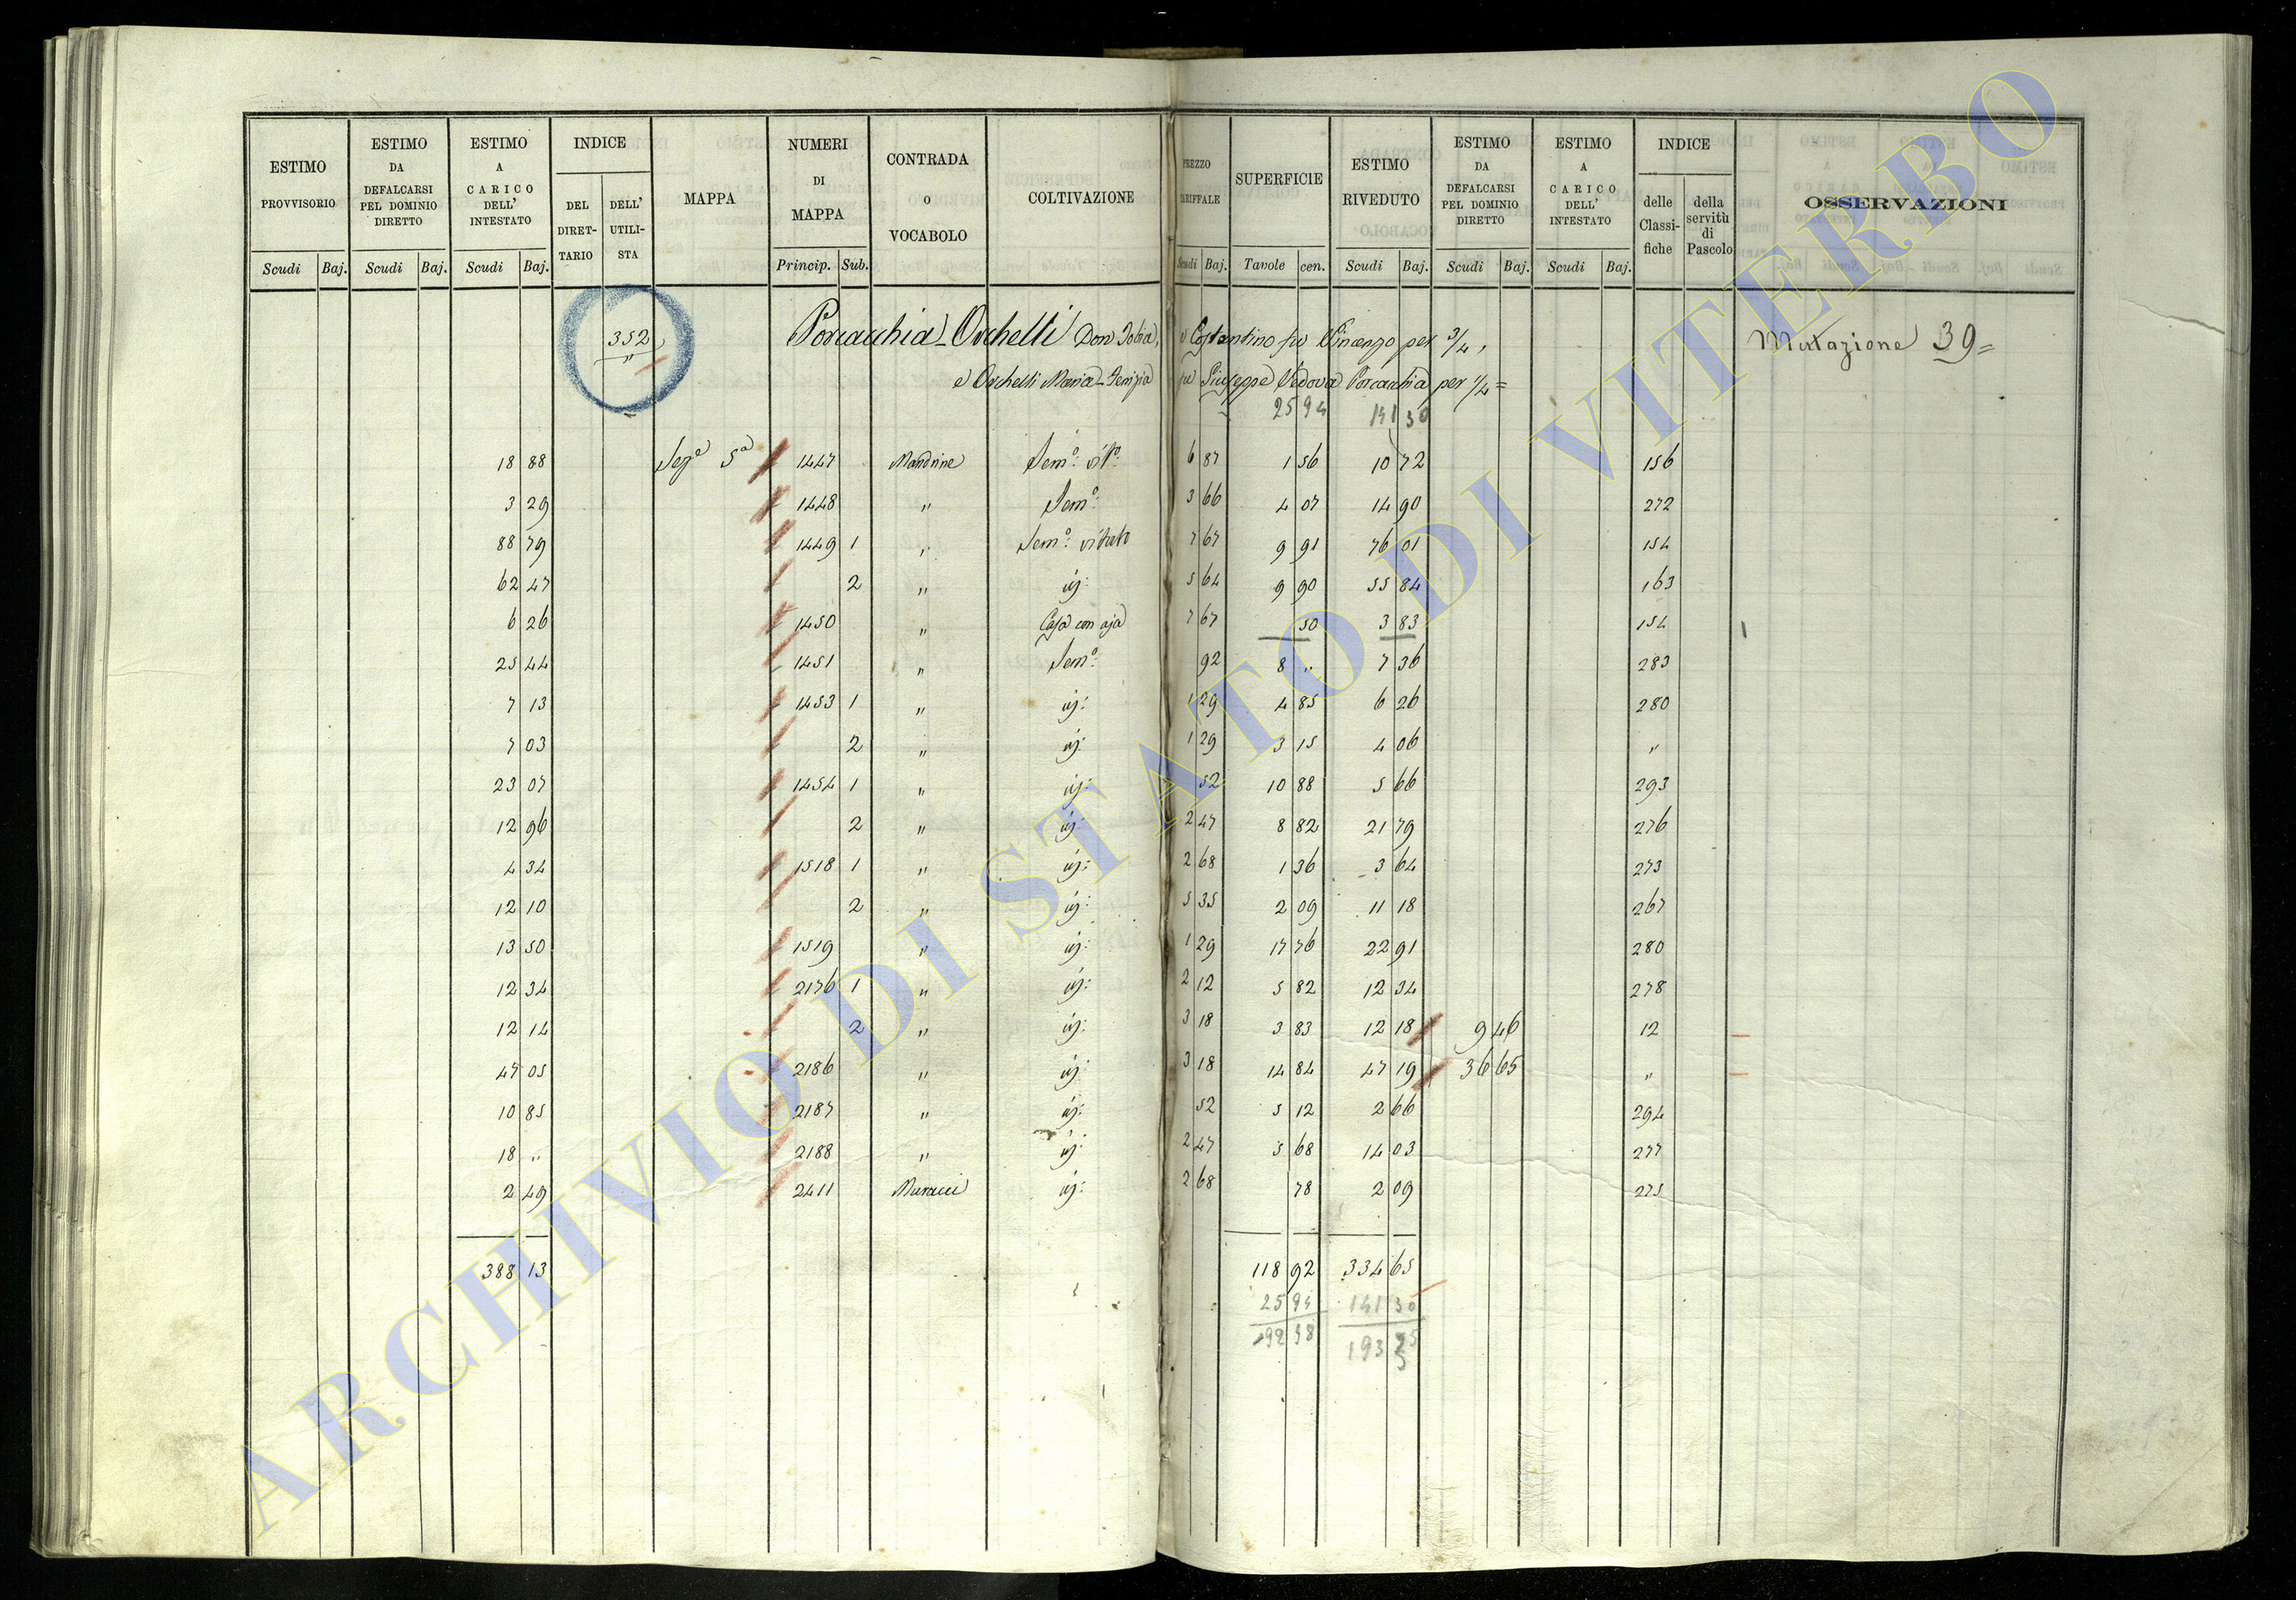 ESTIMO PROVVISORIO
ESTIMO DA DEFALCARSI PEL DOMINIO DIRETTO
ESTIMO A CARICO DELL' INTESTATO
INDICE
DEL DIRET-TARIO
DELL' UTILI-STA
MAPPA
NUMERI DI MAPPA
CONTRADA o VOCABOLO
COLTIVAZIONE
PREZZO TARIFFALE
SUPERFICIE
ESTIMO RIVEDUTO
ESTIMO DA DEFALCARSI PEL DOMINIO DIRETTO
ESTIMO A CARICO DELL' INTESTATO
INDICE
delle Classi-fiche
della servitù di Pascolo
OSSERVAZIONI
Scudi Baj. Scudi Baj. Scudi Baj. Princip. Sub. Scudi Baj. Tavole cen. Scudi Baj. Scudi Baj. Scudi Baj.
352 Porcacchia-Occhelli Don Tobia, e Costantino fu Vincenzo per 3/4, Mutazione 39=
e Occhelli Maria-Temizia fu Giuseppe Vedova Porcacchia per 1/4=
25 94 141 30
18 88 Sez.e 5a 1447 Mandrine Sem.o vit.o 6 87 1 56 10 72 156
3 29 1448 " Sem.o 3 66 4 07 14 90 272
88 79 1449 1 " Sem.o vitato 7 67 9 91 76 01 154
62 47 2 " id: 5 64 9 90 55 84 163
6 26 1450 " Casa con aja 7 67 50 3 83 154
25 44 1451 " Sem.o 92 8 " 7 36 283
7 13 1453 1 " id: 1 29 4 85 6 26 280
7 03 2 " id: 1 29 3 15 4 06 "
23 07 1454 1 " id: 52 10 88 5 66 293
12 96 2 " id: 2 47 8 82 21 79 276
4 34 1518 1 " id: 2 68 1 36 3 64 273
12 10 2 " id: 5 35 2 09 11 18 267
13 50 1519 " id: 1 29 17 76 22 91 280
12 34 2176 1 " id: 2 12 5 82 12 34 278
12 14 2 " id: 3 18 3 83 12 18 9 46 12
47 05 2186 " id: 3 18 14 84 47 19 36 65 "
10 85 2187 " id: 52 5 12 2 66 294
18 " 2188 " id: 2 47 5 68 14 03 277
2 49 2411 Muracci id: 2 68 78 2 09 275
388 13 118 92 334 65
25 94 141 30
92 98 193 35
ARCHIVIO DI STATO DI VITERBO